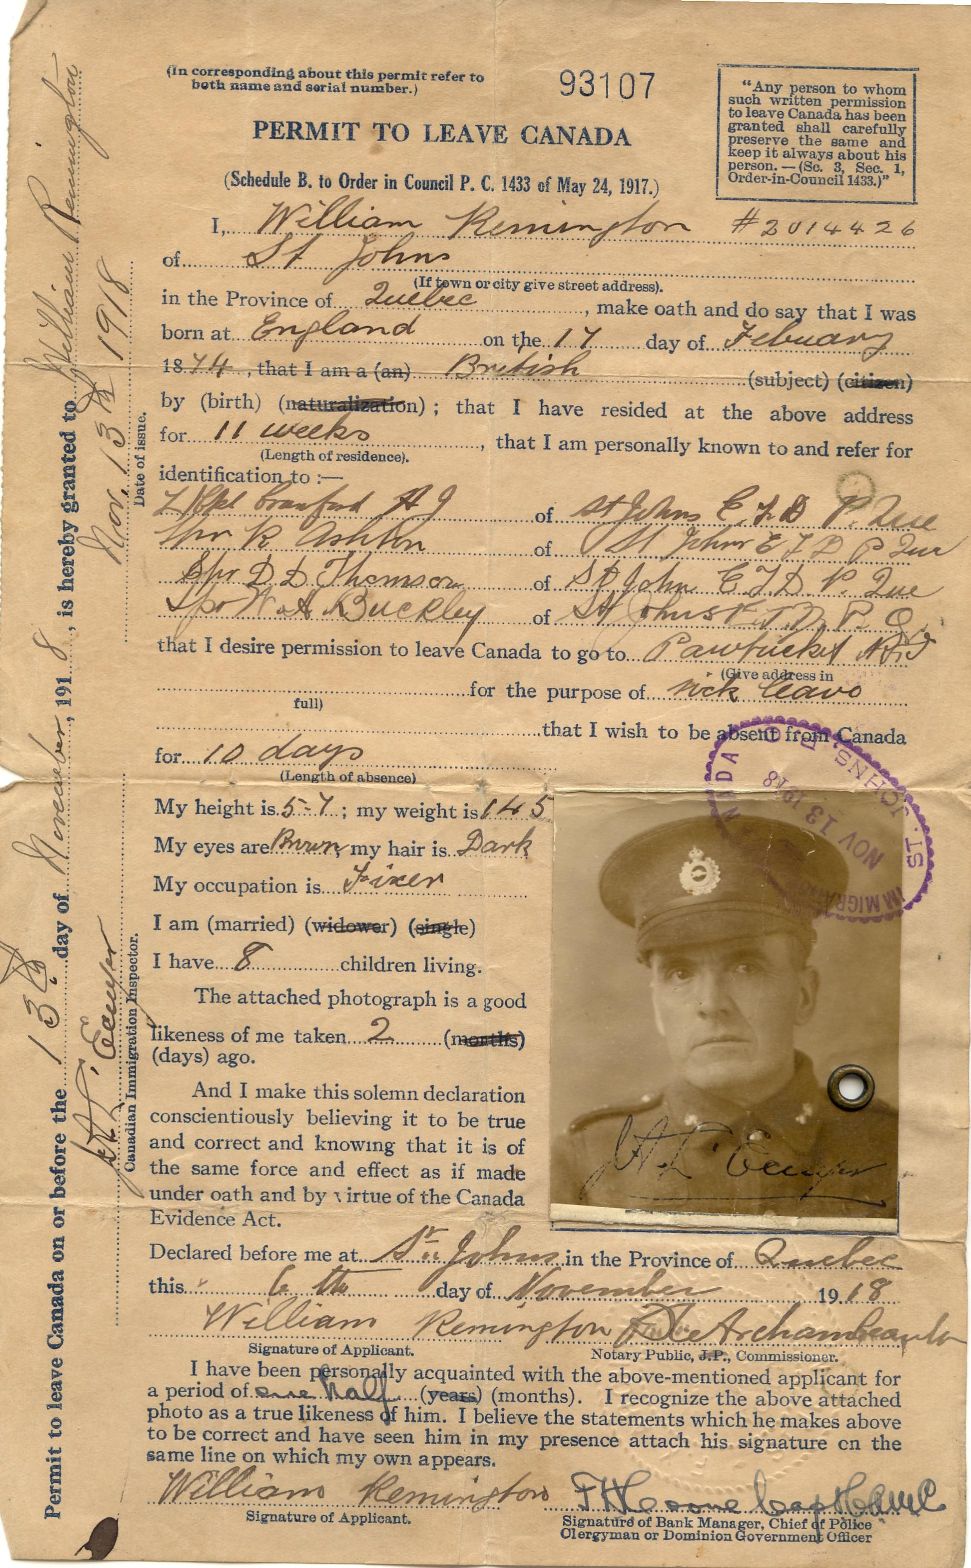 (In corresponding about this permit refer to
both name and serial number.)
93107
"Any person to whom
such written permission
to leave Canada has been
granted shall carefully
preserve the same and
keep it always about his
person.—(Sc. 3, Sec. 1,
Order-in-Council 1433.)"
PERMIT TO LEAVE CANADA
(Schedule B. to Order in Council P. C. 1433 of May 24, 1917.)
I, William Remington #2014426
of St Johns
(If town or city give street address).
in the Province of Quebec, make oath and do say that I was
born at England on the 17 day of Febuary
1874, that I am a (an) British (subject) (citizen)
by (birth) (naturalization); that I have resided at the above address
for 11 weeks, that I am personally known to and refer for
(Length of residence).
identification to:—
L/Cpl Cranford A J of St Johns E.T.D P. Que
Spr R Ashton of St Johns E T D P Que
Spr D. D. Thomson of St John E.T.D. P. Que
Spr W. A. Buckley of St Johns E.T.D. P. Q.
that I desire permission to leave Canada to go to Pawtucket
(Give address in
for the purpose of sick leave
full)
that I wish to be absent from Canada
for 10 days
(Length of absence)
My height is 5-7; my weight is 145
My eyes are Brown, my hair is Dark
My occupation is Fixer
I am (married) (widower) (single)
I have 8 children living.
The attached photograph is a good
likeness of me taken 2 (months)
(days) ago.
And I make this solemn declaration
conscientiously believing it to be true
and correct and knowing that it is of
the same force and effect as if made
under oath and by virtue of the Canada
Evidence Act.
ST. JOHNS, P.Q.
NOV 13 1918
Declared before me at St. Johns in the Province of Quebec
this 6th day of November 1918
William Remington Archambault
Signature of Applicant. Notary Public, J.P., Commissioner.
I have been personally acquainted with the above-mentioned applicant for
a period of one half (years) (months). I recognize the above attached
photo as a true likeness of him. I believe the statements which he makes above
to be correct and have seen him in my presence attach his signature on the
same line on which my own appears.
William Remington
Signature of Applicant.
Signature of Bank Manager, Chief of Police
Clergyman or Dominion Government Officer
Permit to leave Canada on or before the 13th day of November, 1918, is hereby granted to William Remington
Nov. 13th 1918
Date of issue.
Canadian Immigration Inspector.